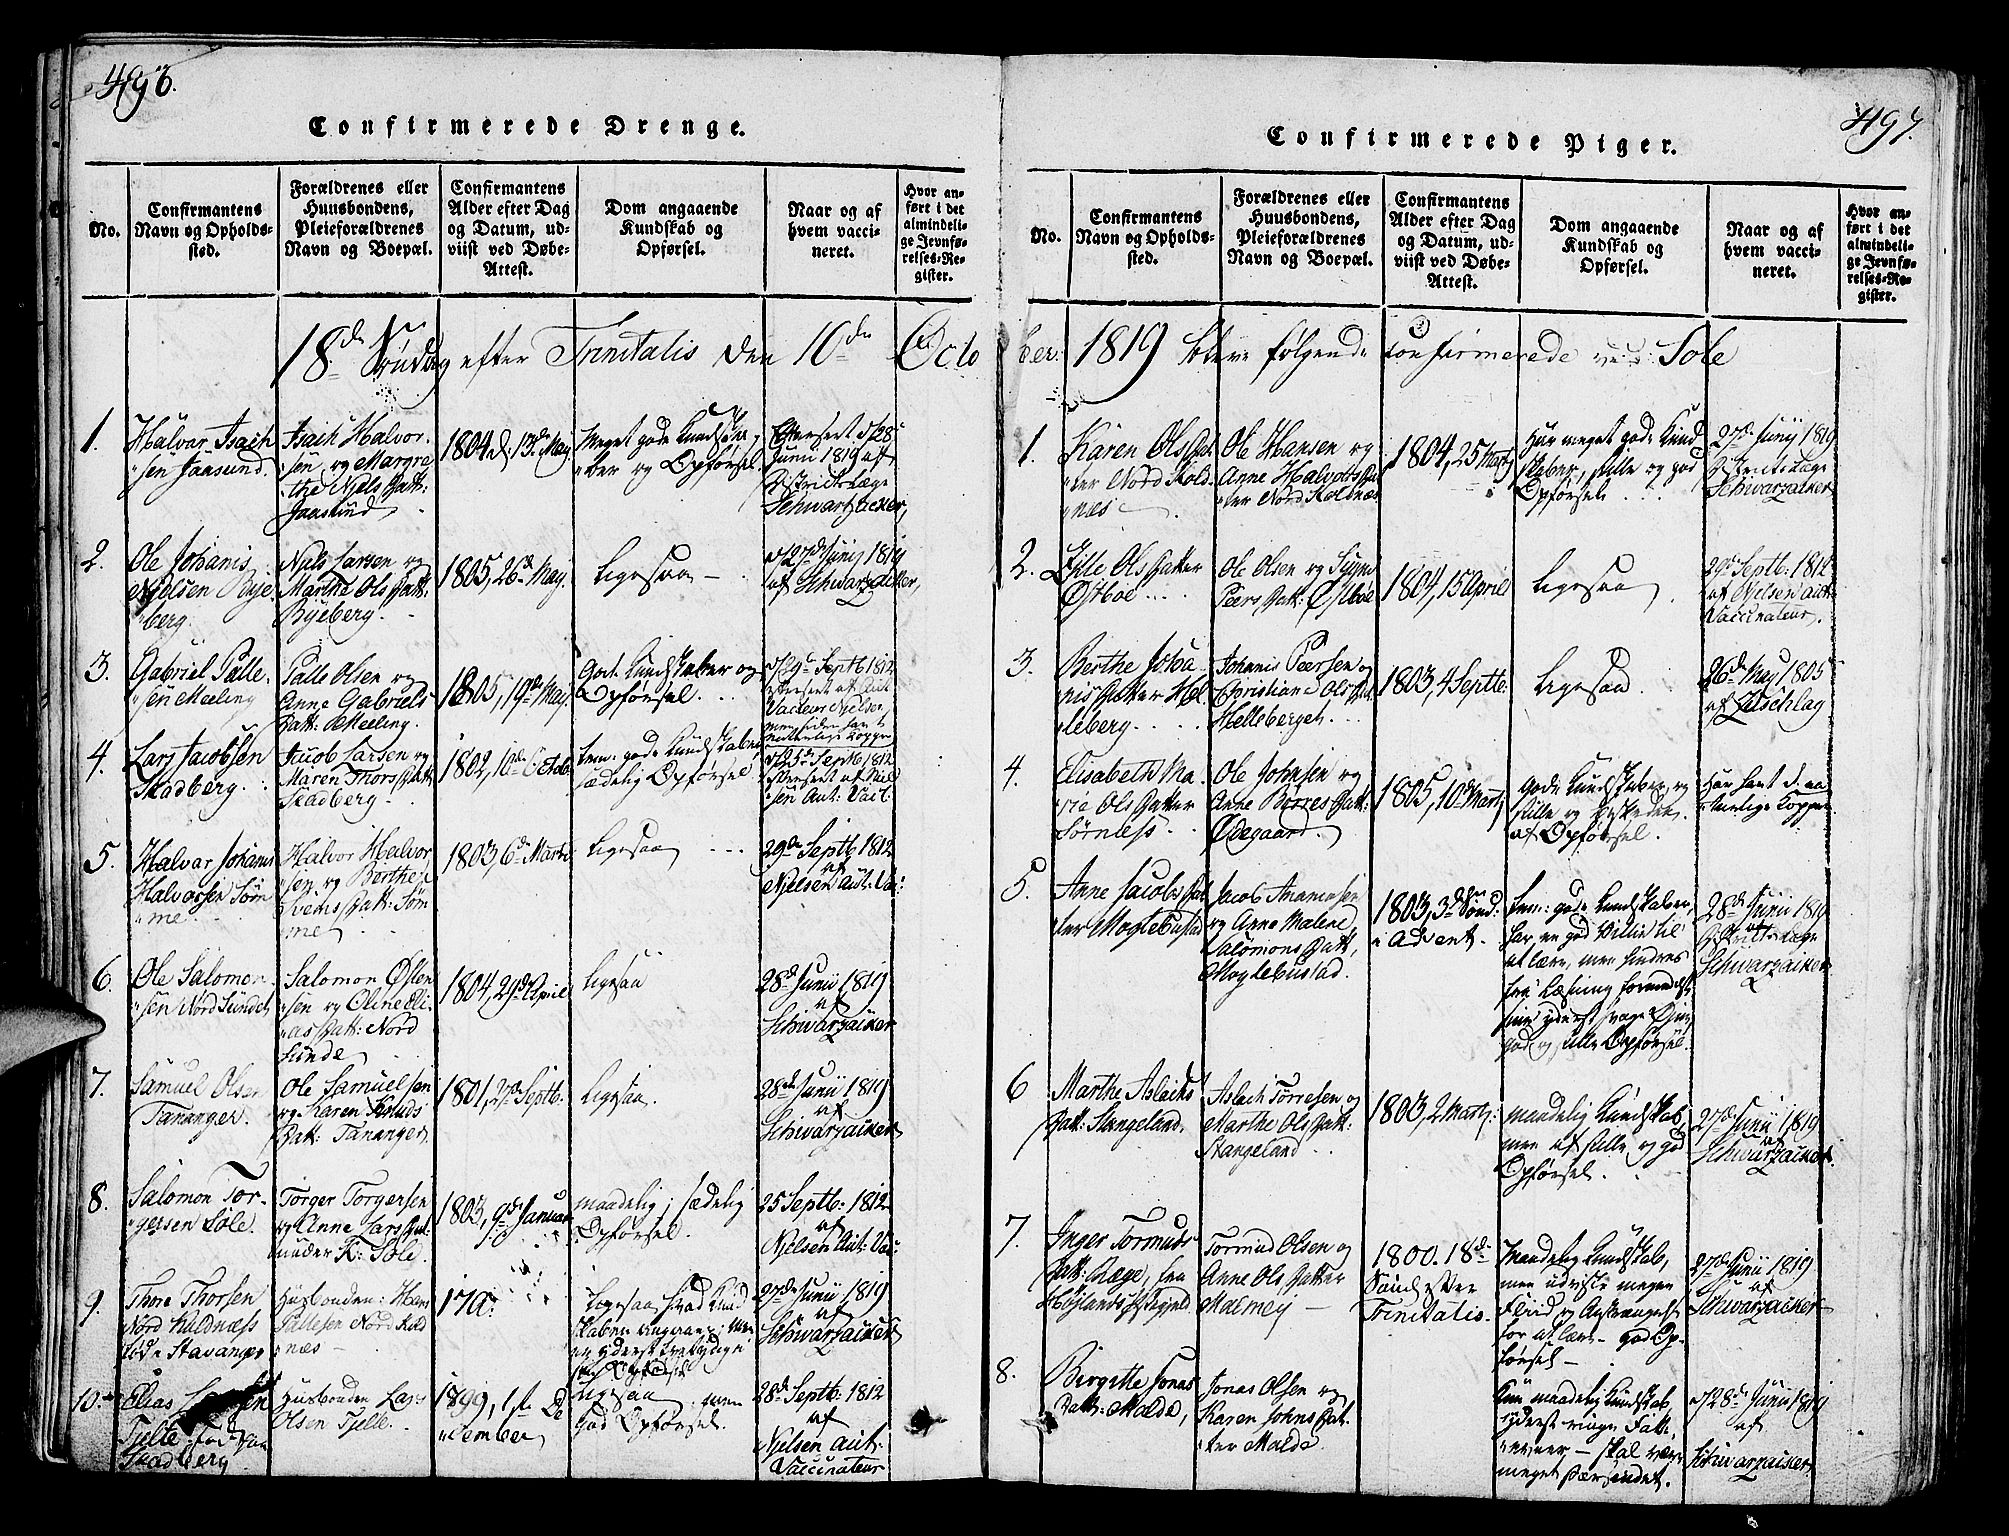 496.
Confirmerede Drenge.
No.
Confirmantens
Navn og Opholds-
sted.
Forældrenes eller
Huusbondens,
Pleieforældrenes
Navn og Boepæl.
Confirmantens
Alder efter Dag
og Datum, ud-
viist ved Døbe-
Attest.
Dom angaaende
Kundskab og
Opførsel.
Naar og af
hvem vacci-
neret.
Hvor an-
ført i det
almindeli-
ge Jevnfø-
relses-Re-
gister.
18de Søndag efter Trinitatis den 10de Octo
1.
Halvar Isach
sen Jaasund.
Isach Halvor
sen og Margre
the Niels Datt:
Jaasund
1804 d. 13de May
Meget gode Kundska
ber og Opførsel
28
Junii 1819 af
Districts Læge
Schwartzacker,
2.
Ole Johanis
Nielsen Byje
berg.
Niels Larsen og
Marthe Ols Datt:
Byeberg.
1805, 26de May.
ligesaa
27de Junij 1819
af Schwarzacker,
3.
Gabriel Palle
sen Meeling
Palle Olsen og
Anne Gabriels
Datt: Meeling.
1805, 19de May.
God Kundskaber og
Opførsel.
29 Septb 1812
af Aut.
Vacteur Nielsen,
men siden havt
naturlige Kopper
4.
Lars Jacobsen
Skadberg.
Jacob Larsen og
Maren Thors Datt
Skadberg.
1802, 10de Octob
Tem: gode Kundskaber
sædelig Opførsel
25de Septb 1812
af Niel
sen Aut: Vacc.
5.
Halvar Johanis
Halvorsen Søm
me
Halvor Halvor
sen og Berthe
Svens Datt: Søm
me
1803 6de Marti
ligesaa
29de Septb 1812
af
Nielsen Aut: Vac:
6.
Ole Salomon
sen Nord Sunde
Salomon Østen
sen og Oline Eli
as Datt: Nord
Sunde
1804, 29de April
ligesaa
28de Junii 1819
af
Schwarzacker
7.
Samuel Olsen
Tananger.
Ole Samuelsen
og Karen Knuds
Datt: Tananger
1801, 27de Septb.
ligesaa.
28de Junii 1819
af
Schwarzacker
8.
Salomon Tor-
gersen Sole.
Torger Torgersen
og Anne Lars Dat
under K: Sole.
1803, 9de Januar
maadelig; sædelig
Opførsel.
25 Septb: 1812
af
Nielsen Aut: Vac:
9.
Thore Thorsen
Nord Koldnæss
fød i Stavanger
Husbonden: Hans
Pallesen Nord Kold
næs
179
Ligesaa hvad Kund
skaben angaaer: men
en yderst
Opførsel
27de Junii 1819
af
Schwarzacker
10.
Elias
Tjelle fød paa
Skadberg
Husbonden Lars
Olsen Tjelle.
1799, 1ste De
cember
ligesaa men
god Opførsel.
28de Septb: 1812
af
Nielsen Aut:
Vaccinateur
497.
Confirmerede Piger.
No.
Confirmantens
Navn og Opholds-
sted.
Forældrenes eller
Huusbondens,
Pleieforældrenes
Navn og Boepæl.
Confirmantens
Alder efter Dag
og Datum, ud-
viist ved Døbe-
Attest.
Dom angaaende
Kundskab og
Opførsel.
Naar og af
hvem vacci-
neret.
Hvor an-
ført i det
almindeli-
ge Jevnfø-
relses-Re-
gister.
ber 1819 bleve følgende confirmerede ved Sole
1.
Karen Ols Dat
ter Nord Kold-
næs
Ole Hansen og
Anne Halvors Da
ter Nord Koldnæs
1804, 25 Martj
Har meget gode Kund
skaber, stille og god
Opførsel
27de Junij 1819
Districts Læge
Schwarzacker
2.
Ole Olsen og
Peers Datt: Østboe
Ols Datter
Østboe
1804, 15 April
ligesaa
29de Septb. 1812
af Nielsen aut:
Vaccinateur.
3.
Berthe Joha
nis Datter Hel
leberg
Johanis Peersen og
Christiane Ols Datt
Hellebergeh
1803, 4 Septbr.
ligesaa
26de May 1805
af Zetschlag
4.
Elisabeth Ma
rie Ols Datter
Sørnæss
Ole Johnsen og
Anne Børres Datt:
Ødegaard.
1805, 10de Martj
Gode Kundskaber og
stille og beskeden
af Opførsel.
Har havt de na
turlige Kopper
5.
Anne Jacobs Dat
ter Mogtebustad
Jacob Ananiasen
og Anne Malene
Salomons Datt,
Mogdebustad.
1803, 3de Sønd:
i Advent.
Tem: gode Kundskaber,
har en god Villie til
at lære, men hindres
fra Læsning formedelst
sine yderst svage Øine
god og stille Opførsel.
28de Junii 1819
Districts Læge
Schwarzacker
6
Marthe Aslachs
Datt: Stangeland,
Aslach Torresen og
Marthe Ols Datt:
Stangeland
1803, 2 Martj:
maadelig Kundskab,
men af stille og god
Opførsel.
27de Junii 1819
af
Schwarzacker
7.
Inger Tormuds
Datt: Ræge, fra
Høylands
Tormud Olsen og
Anne Ols Datter
Malmeij
1800. 18de
Sønd efter
Trinitatis.
Maadelig Kundskab,
men udviste megen
Fliid og Anstrengelse
for at lære - god Op-
førsel
27de Junii 1819
af
Schwarzacker
8.
Birgitte Jonas
Datt: Malde,
Jonas Olsen og
Karen Johns Dat
ter Malde.
Kun maadelig Kundskab,
yderst ringe Fatte
evner - skal være
meget
28de Junii 1819
af
Schwarzacker